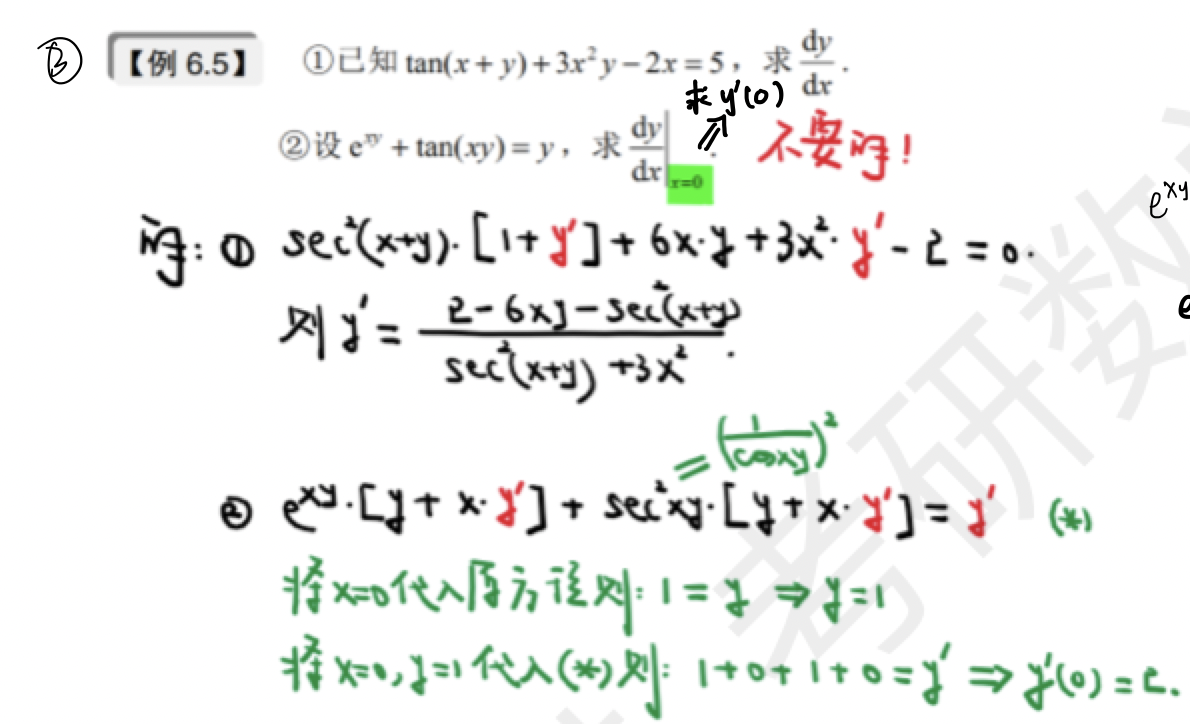 ③ 【例 6.5】 ①已知 tan(x + y) + 3x²y − 2x = 5，求 dy/dx .
求 y'(0)
②设 e^{xy} + tan(xy) = y，求 dy/dx |_{x=0} . 不要
e^{xy}
① sec²(x+y)·[1+y'] + 6x·y + 3x²·y' − 2 = 0.
则 y' = (2 − 6xy − sec²(x+y)) / (sec²(x+y) + 3x²) .
= (1/cosxy)²
② e^{xy}·[y + x·y'] + sec²xy·[y + x·y'] = y' (*)
将x=0代入原方程则: 1 = y ⇒ y=1
将x=0, y=1代入(*)则: 1+0+1+0 = y' ⇒ y'(0) = 2.
考研数